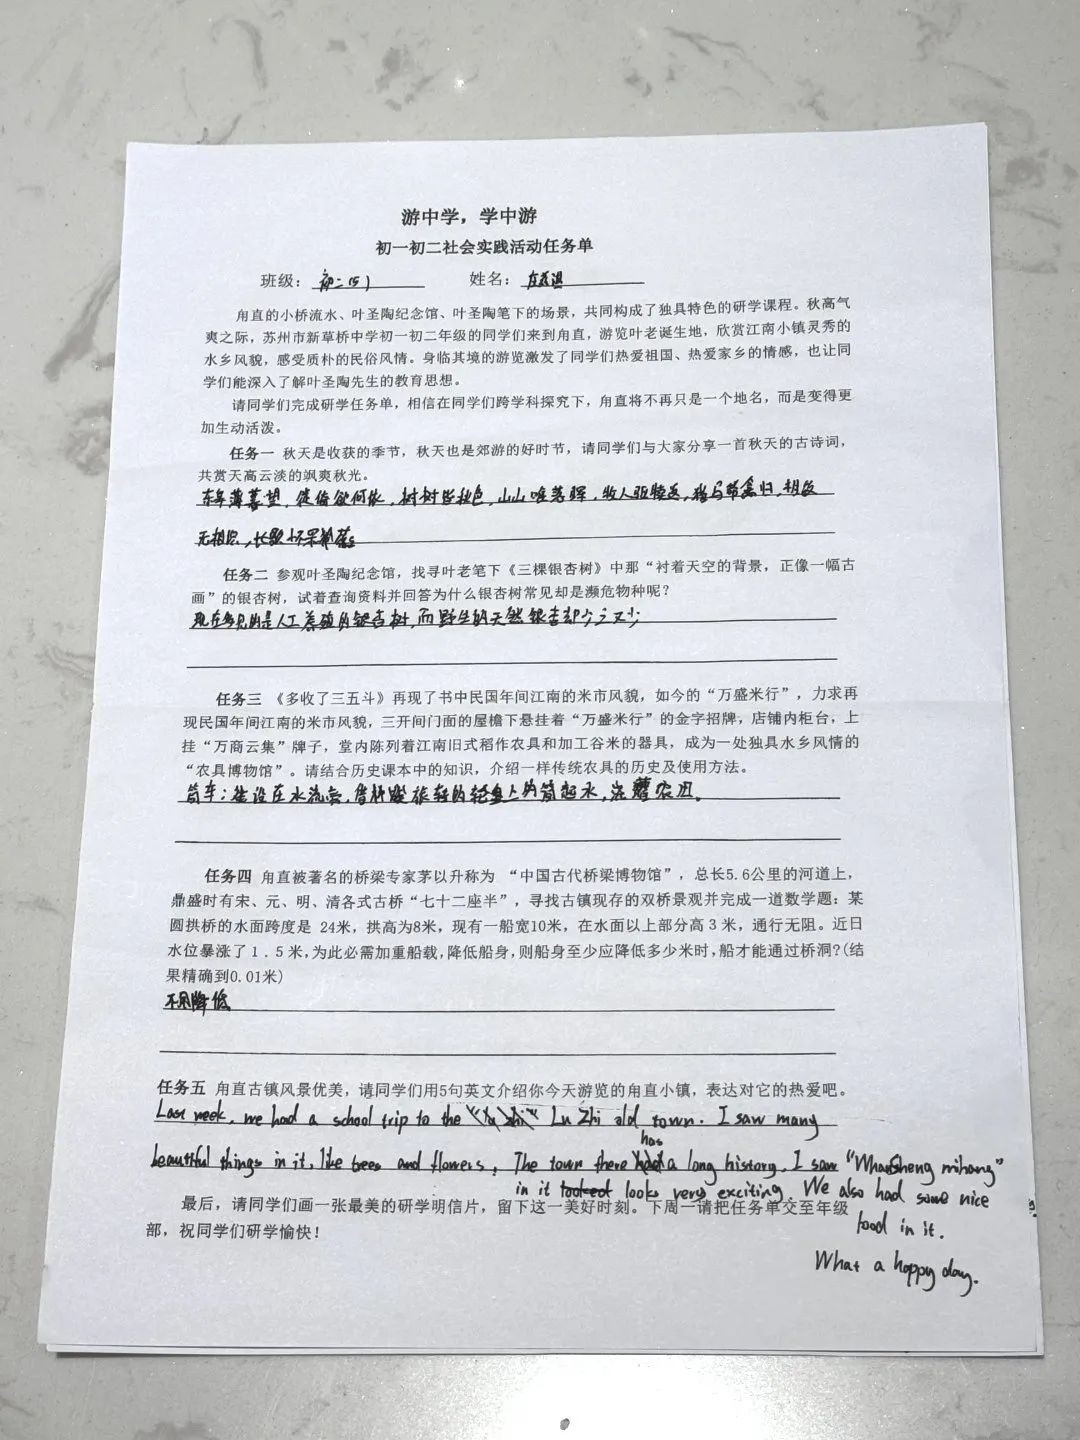 游中学，学中游
初一初二社会实践活动任务单
班级：初二(5) 姓名：
甪直的小桥流水、叶圣陶纪念馆、叶圣陶笔下的场景，共同构成了独具特色的研学课程。秋高气
爽之际，苏州市新草桥中学初一初二年级的同学们来到甪直，游览叶老诞生地，欣赏江南小镇灵秀的
水乡风貌，感受质朴的民俗风情。身临其境的游览激发了同学们热爱祖国、热爱家乡的情感，也让同
学们能深入了解叶圣陶先生的教育思想。
请同学们完成研学任务单，相信在同学们跨学科探究下，甪直将不再只是一个地名，而是变得更
加生动活泼。
任务一 秋天是收获的季节，秋天也是郊游的好时节，请同学们与大家分享一首秋天的古诗词，
共赏天高云淡的飒爽秋光。
东皋薄暮望，徙倚欲何依，树树皆秋色，山山唯落晖，牧人驱犊返，猎马带禽归，相顾
无相识，长歌怀采薇。
任务二 参观叶圣陶纪念馆，找寻叶老笔下《三棵银杏树》中那“衬着天空的背景，正像一幅古
画”的银杏树，试着查询资料并回答为什么银杏树常见却是濒危物种呢？
现在多见的是人工养殖的银杏树，而野生的天然银杏却少之又少
任务三 《多收了三五斗》再现了书中民国年间江南的米市风貌，如今的“万盛米行”，力求再
现民国年间江南的米市风貌，三开间门面的屋檐下悬挂着“万盛米行”的金字招牌，店铺内柜台，上
挂“万商云集”牌子，堂内陈列着江南旧式稻作农具和加工谷米的器具，成为一处独具水乡风情的
“农具博物馆”。请结合历史课本中的知识，介绍一样传统农具的历史及使用方法。
筒车：建设在水流旁，旋转的轮盘上的筒起水，浇灌农田。
任务四 甪直被著名的桥梁专家茅以升称为 “中国古代桥梁博物馆”，总长5.6公里的河道上，
鼎盛时有宋、元、明、清各式古桥“七十二座半”，寻找古镇现存的双桥景观并完成一道数学题：某
圆拱桥的水面跨度是 24米，拱高为8米，现有一船宽10米，在水面以上部分高 3 米，通行无阻。近日
水位暴涨了 1 . 5 米,为此必需加重船载,降低船身,则船身至少应降低多少米时,船才能通过桥洞?(结
果精确到0.01米)
不用降低
任务五 甪直古镇风景优美，请同学们用5句英文介绍你今天游览的甪直小镇，表达对它的热爱吧。
Last week, we had a school trip to the Lu Zhi old town. I saw many
beautiful things in it, like trees and flowers. The town there has a long history. I saw "WhanSheng mihang"
in it looked looks very exciting. We also had some nice
food in it.
What a happy day.
最后，请同学们画一张最美的研学明信片，留下这一美好时刻。下周一请把任务单交至年级
部，祝同学们研学愉快！